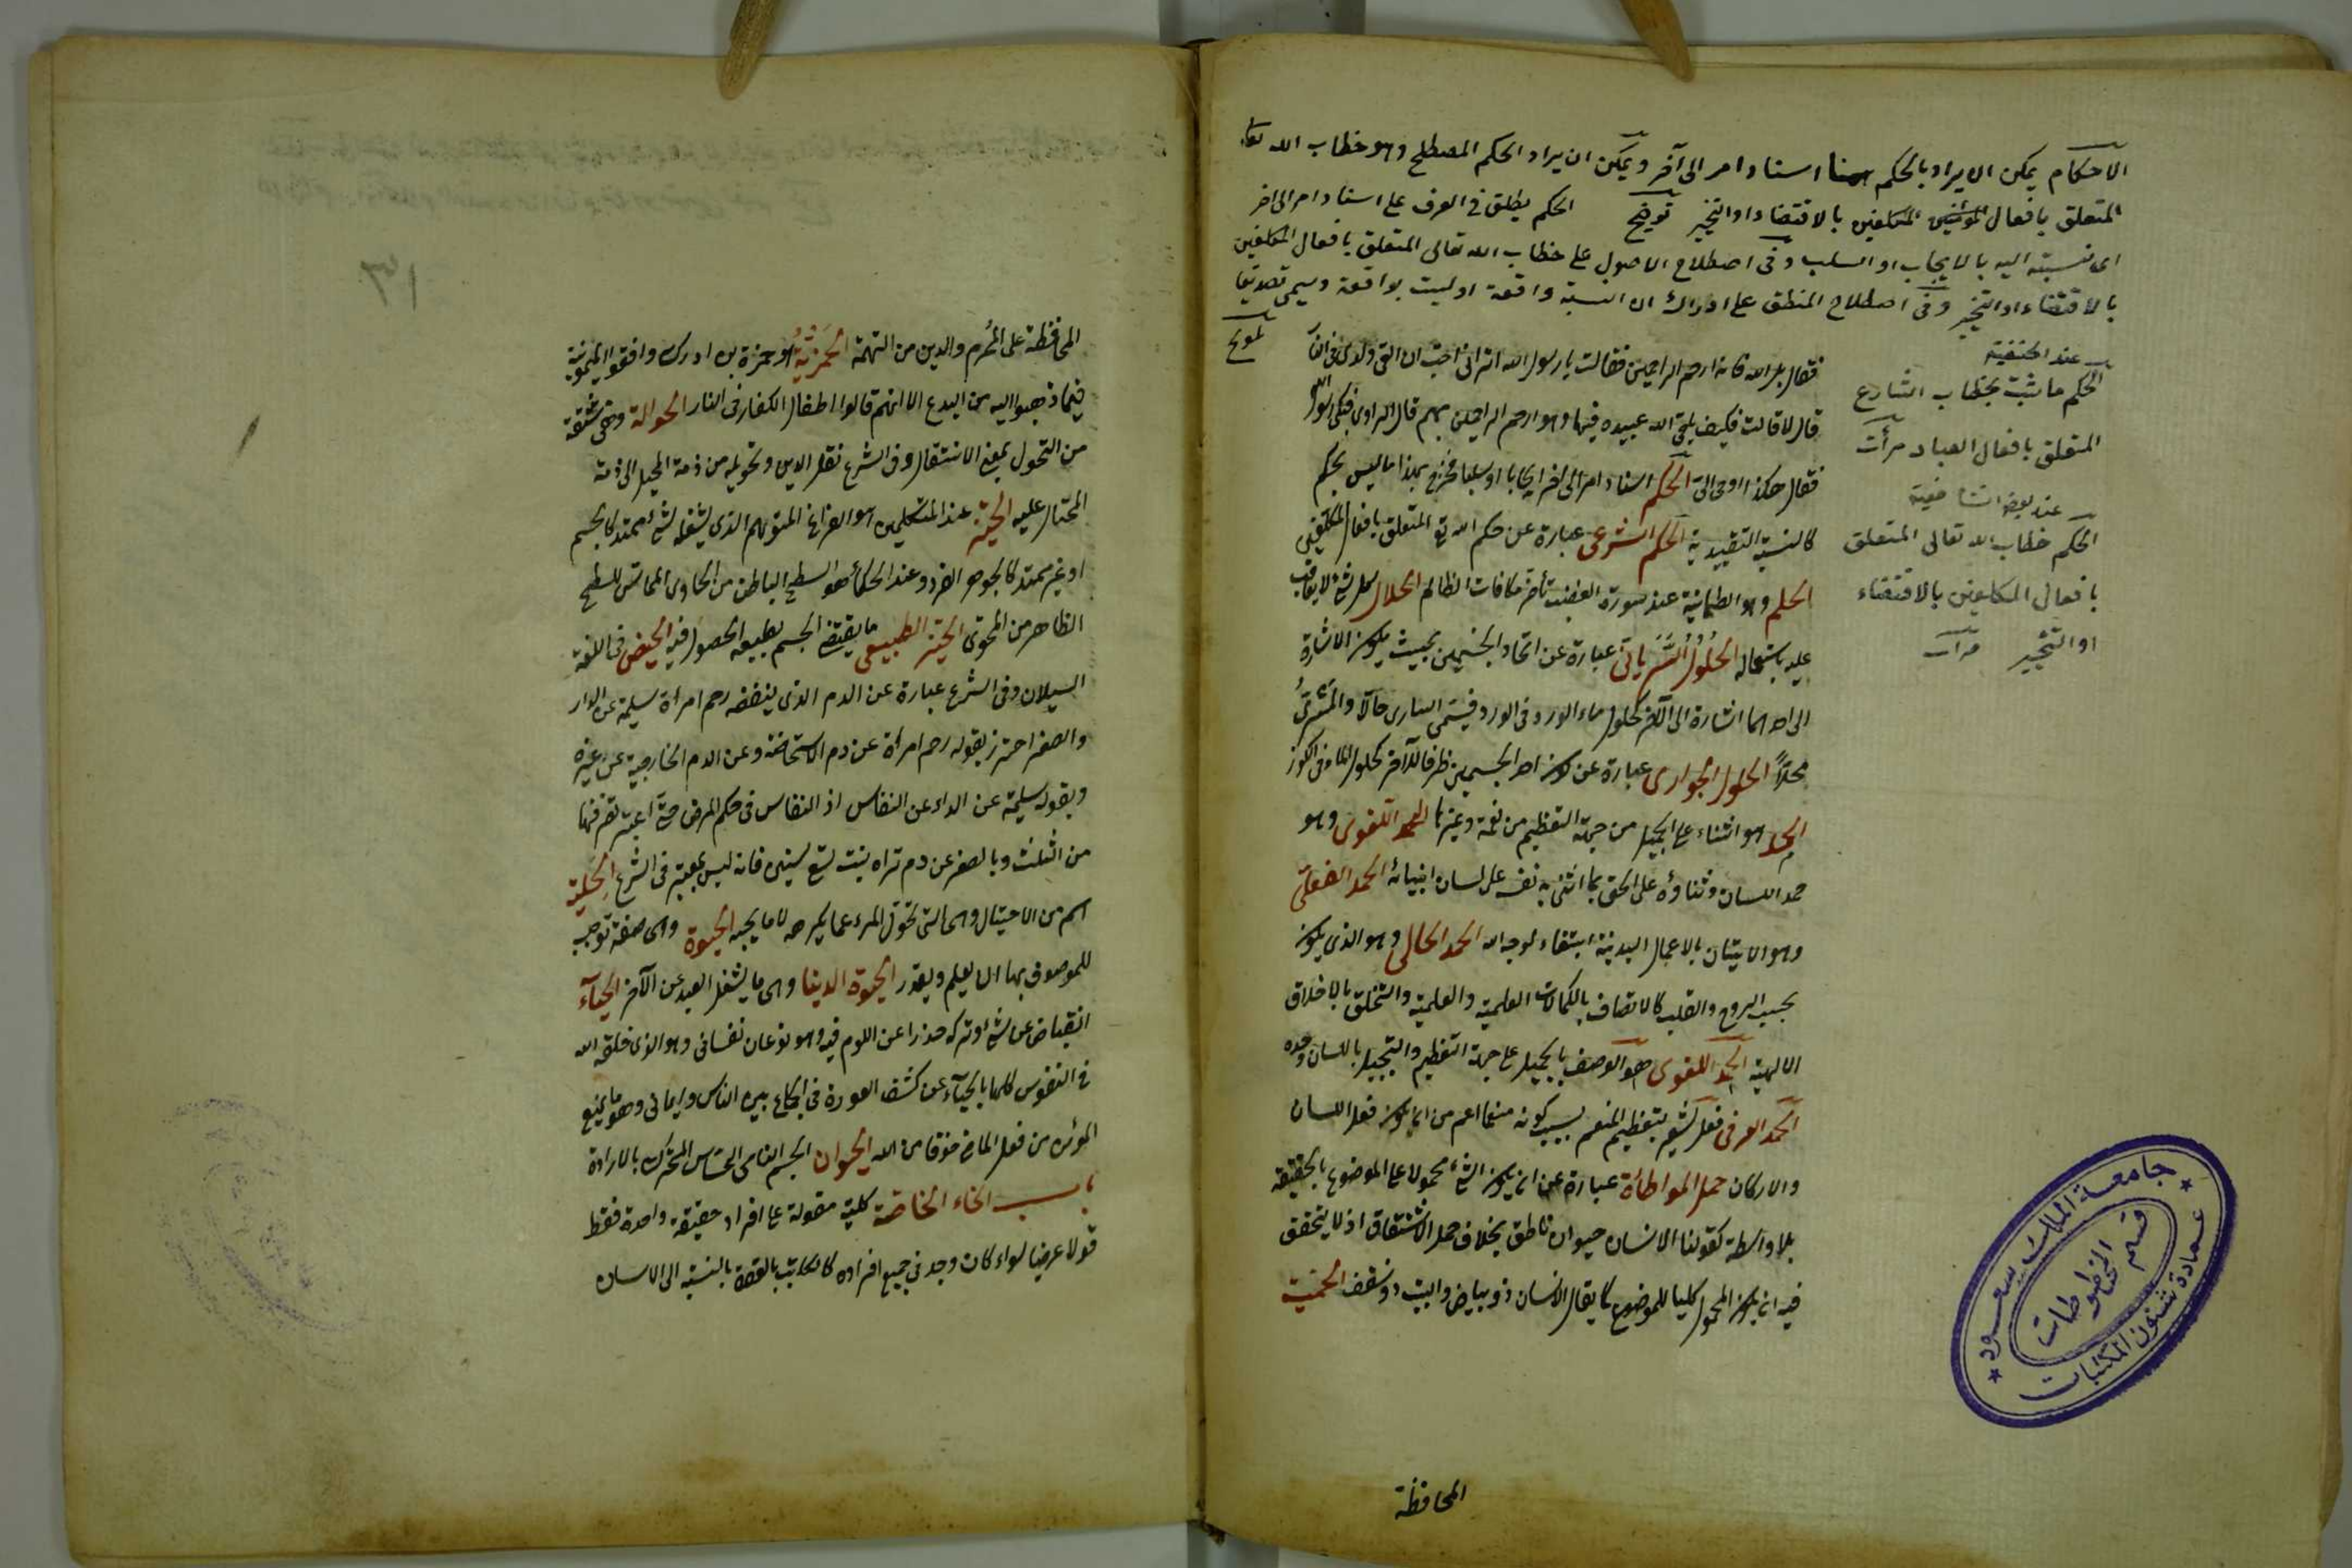 الاحكام يمكن ان يراد بالحكم هنا اسناد امر الى آخر ويمكن ان يراد الحكم المصطلح وهو خطاب الله تعا
المتعلق بافعال المكلفين بالاقتضاء او التخيير توضيح الحكم يطلق فى العرف على اسناد امر الى اخر
اى نسبته اليه بالايجاب او السلب وفى اصطلاح الاصول على خطاب الله تعالى المتعلق بافعال المكلفين
بالاقتضاء او التخيير وفى اصطلاح المنطق على ادراك ان النسبة واقعة او ليست بواقعة ويسمى تصديقا
تلويح
عند الحنفية
الحكم ما ثبت بخطاب الشارع
المتعلق بافعال العباد مرآت
عند بعض الشافعية
الحكم خطاب الله تعالى المتعلق
بافعال المكلفين بالاقتضاء
او التخيير مرآت
فقال بل الله فانه ارحم الراحمين فقالت يا رسول الله اترانى احب ان القى ولدى فى النار
قال لا قالت فكيف يلقى الله عبيده فيها وهو ارحم الراحمين بهم قال الراوى فبكى رسول الله
فقال هكذا اوحى الى الحكم اسناد امر الى اخر ايجابا او سلبا فخرج بهذا ما ليس بحكم
كالنسبة التقييدية الحكم الشرعى عبارة عن حكم الله تع المتعلق بافعال المكلفين
الحلم وهو الطمانينة عند سورة الغضب تأخر مكافات الظالم الحلال كل شئ لا يعاقب
عليه باستعماله الحلول السريانى عبارة عن اتحاد الجسمين بحيث يكون الاشارة
الى احدهما اشارة الى الآخر كحلول ماء الورد فى الورد فيسمى السارى حالا والمسرى
محلا الحلول الجوارى عبارة عن كون احد الجسمين ظرفا للآخر كحلول الماء فى الكوز
الحمد هو الثناء على الجميل من جهة التعظيم من نعمة وغيرها الحمد القولى وهو
حمد اللسان وثناؤه على الحق بما اثنى به نفسه على لسان انبيائه الحمد الفعلى
وهو الاتيان بالاعمال البدنية ابتغاء لوجه الله الحمد الحالى وهو الذى يكون
بحسب الروح والقلب كالاتصاف بالكمالات العلمية والعلمية والتخلق بالاخلاق
الالهية الحمد اللغوى هو الوصف بالجميل على جهة التعظيم والتبجيل باللسان وحده
الحمد العرفى فعل يشعر بتعظيم المنعم بسبب كونه منعما اعم من ان يكون فعل اللسان
والاركان حمل المواطأة عبارة عن ان يكون الشئ محمولا على الموضوع بالحقيقة
بلا واسطة كقولنا الانسان حيوان ناطق بخلاف حمل الاشتقاق اذ لا يتحقق
فيه ان يكون المحمول كليا للموضوع كما يقال الانسان ذو بياض والبيت ذو سقف الحمية
المحافظة
جامعة الملك سعود
قسم المخطوطات
عمادة شئون المكتبات
١٣
المحافظة على المحرم والدين من التهمة الحمزية هو حمزة بن ادرك وافقوا الميمونية
فيما ذهبوا اليه من البدع الا انهم قالوا اطفال الكفار فى النار الحوالة وهى مشتقة
من التحول بمعنى الانتقال وفى الشرع نقل الدين وتحويله من ذمة المحيل الى ذمة
المحتال عليه الحيز عند المتكلمين هو الفراغ المتوهم الذى يشغله شئ ممتد كالجسم
او غير ممتد كالجوهر الفرد وعند الحكماء هو السطح الباطن من الحاوى المماس للسطح
الظاهر من المحوى الحيز الطبيعى ما يقتضى الجسم بطبعه الحصول فيه الحيض فى اللغة
السيلان وفى الشرع عبارة عن الدم الذى ينفضه رحم امرأة سليمة عن الداء
والصغر احترز بقوله رحم امرأة عن دم الاستحاضة وعن الدم الخارجية عن غيره
وبقوله سليمة عن الداء عن النفاس اذ النفاس فى حكم المرض حتى اعتبر تصرفها
من الثلث وبالصغر عن دم تراه بنت تسع سنين فانه ليس بمعتبر فى الشرع الحيلة
اسم من الاحتيال وهى التى تحول المرء عما يكرهه لا ما يحبه الحيوة وهى صفة توجب
للموصوف بها ان يعلم ويقدر الحيوة الدينا وهى ما يشغل العبد عن الآخر الحياء
انقباض عن شئ وتركه حذرا عن اللوم فيه وهو نوعان نفسانى وهو الذى خلقه الله
فى النفوس كلها بالحياء عن كشف العورة فى الجماع بين الناس وايمانى وهو ما يمنع
المؤمن من فعل المعاصى خوفا من الله الحيوان الجسم النامى الحساس المتحرك بالارادة
باب الخاء الخاصة كلية مقولة على افراد حقيقة واحدة فقط
قولا عرضيا سواء كان وجد فى جميع افراده كالكاتب بالقوة بالنسبة الى الانسان